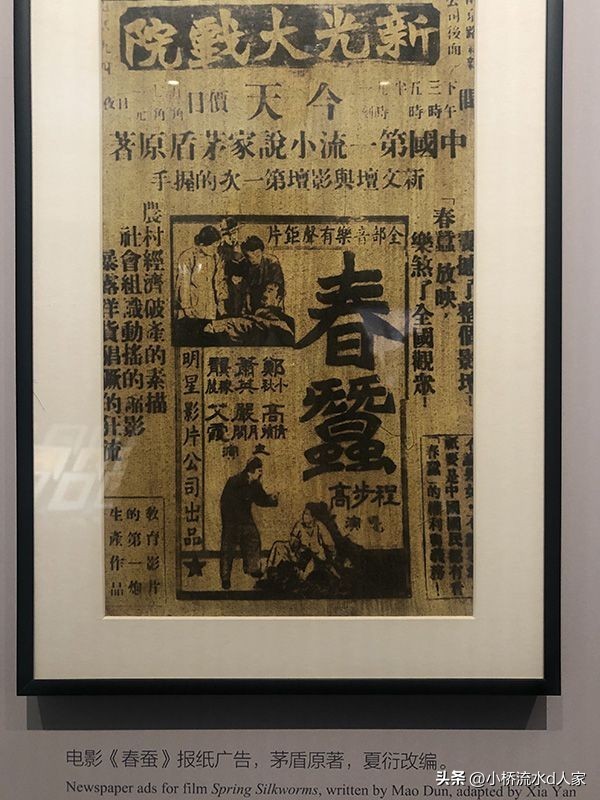 新光大戲院
今天
日價
下午
三時
五時
中國第一流小說家茅盾原著
新文壇與影壇第一次的握手
「春蠶」放映，
樂煞了全國觀眾！
農村經濟破產的素描
社會組織動搖的縮影
暴露洋貨猖獗的狂流
全部音樂有聲鉅片
春蠶
鄭小秋
蕭英
龔稼農
高倩蘋
嚴月閒
艾霞
主演
明星影片公司出品
程步高
導演
教育影片
的第一炮
生產作品
电影《春蚕》报纸广告，茅盾原著，夏衍改编。
Newspaper ads for film Spring Silkworms, written by Mao Dun, adapted by Xia Yan
头条 @小桥流水d人家